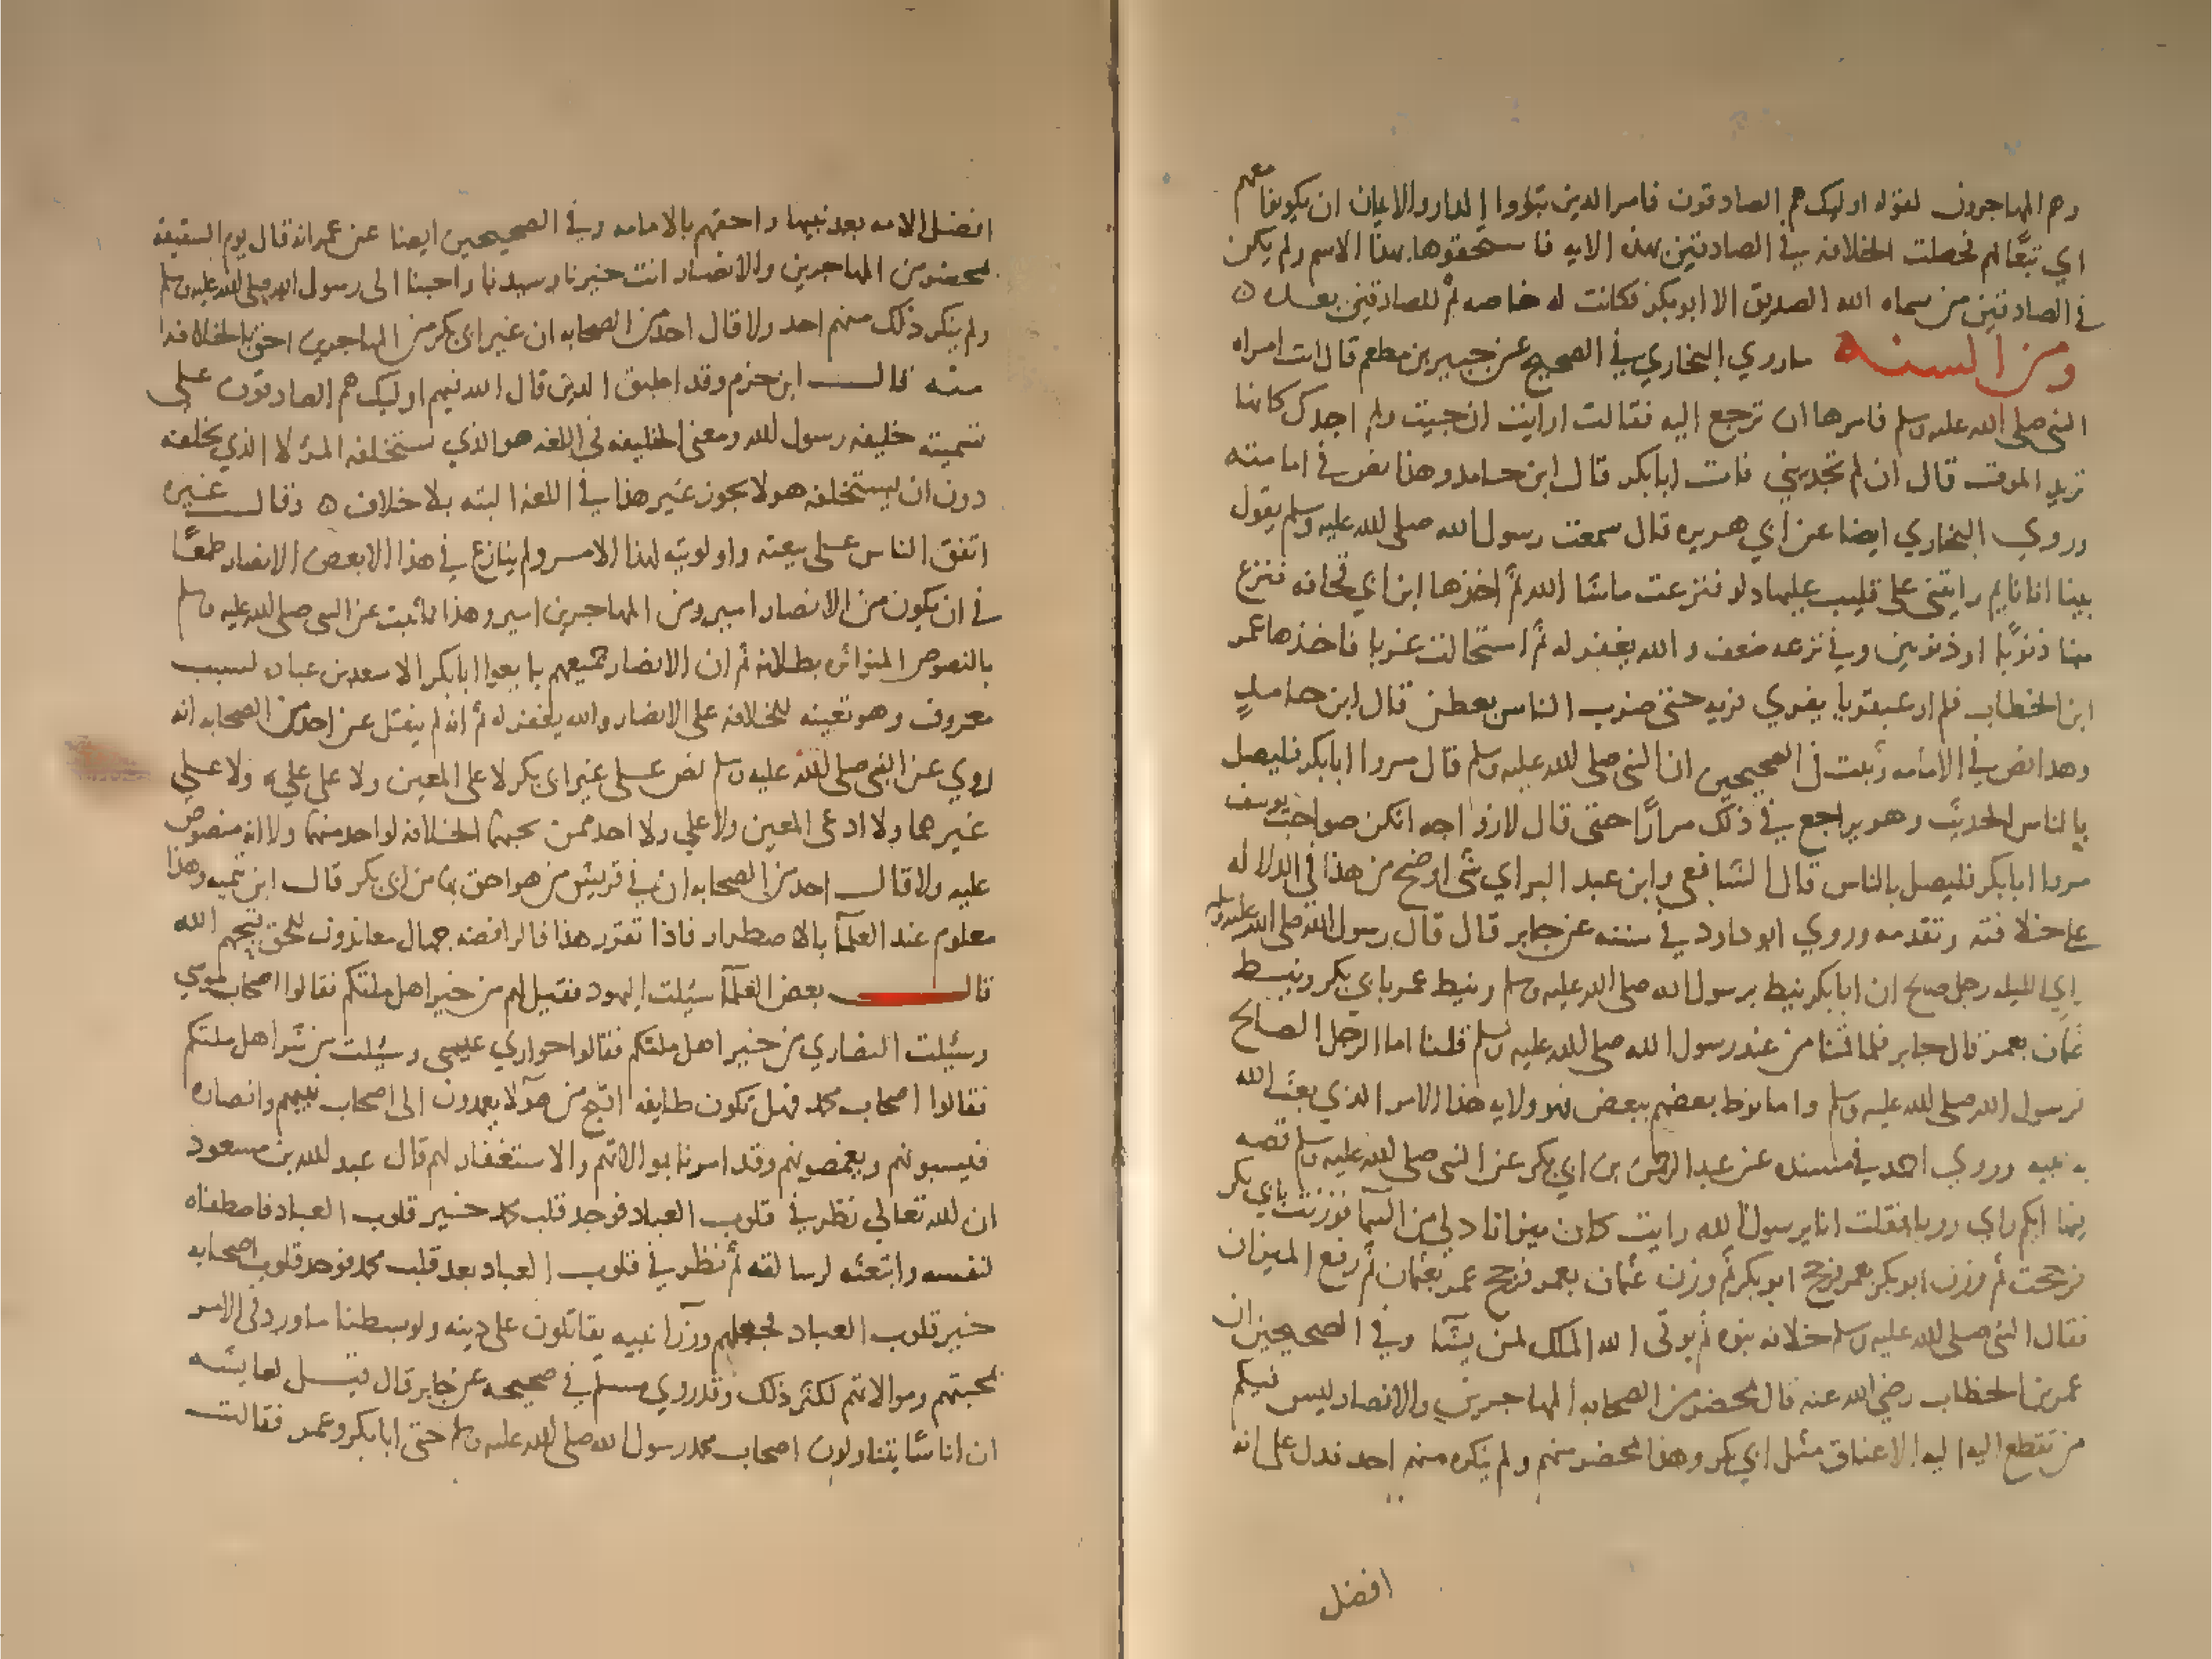 وهم المهاجرون لقوله اوليك هم الصادقون فامر الذين تبوؤوا الدار والايمان ان يكونوا معهم
اي تبعًا لهم فحصلت الخلافه في الصادقين بهذه الايه فاستحقوها بهذا الاسم ولم يكن
في الصادقين من سماه الله الصديق الا ابو بكر فكانت له خاصه ثم للصادقين بعده ه
ومن السنه ما روي البخاري في الصحيح عن جبير بن مطعم قال اتت امراه
النبي صلى الله عليه وسلم فامرها ان ترجع اليه فقالت ارايت ان جيت ولم اجدك كانها
تريد الموت قال ان لم تجديني فات ابا بكر قال ابن حامد وهذا نص في امامته
وروي البخاري ايضا عن ابي هريره قال سمعت رسول الله صلى الله عليه وسلم يقول
بينا انا نايم رايتني على قليب عليها دلو فنزعت ما شا الله ثم اخذها ابن ابي قحافه فنزع
منها ذنوبًا او ذنوبين وفي نزعه ضعف والله يغفر له ثم استحالت غربا فاخذها عمر
ابن الخطاب فلم ار عبقريا يفري فريه حتى ضرب الناس بعطن قال ابن حامد
وهذا نص في الامامه وثبت في الصحيحين ان النبي صلى الله عليه وسلم قال مروا ابا بكر فليصل
بالناس الحديث وهو يراجع في ذلك مرارًا حتى قال لازواجه انكن صواحب يوسف
مروا ابا بكر فليصل بالناس قال الشافعي وابن عبد البر اي شي اوضح من هذا في الدلاله
على خلافته وتقدمه وروي ابو داود في سننه عن جابر قال قال رسول الله صلى الله عليه وسلم
اري الليله رجل صالح ان ابا بكر نيط برسول الله صلى الله عليه وسلم ونيط عمر بابي بكر ونيط
عثمان بعمر قال جابر فلما قمنا من عند رسول الله صلى الله عليه وسلم قلنا اما الرجل الصالح
فرسول الله صلى الله عليه وسلم واما نوط بعضهم ببعض فهو ولايه هذا الامر الذي بعث الله
به نبيه وروي احمد في مسنده عن عبد الرحمن بن ابي بكر عن النبي صلى الله عليه وسلم قصه
فيها ايكم راي رويا فقلت انا يرسول الله رايت كان ميزانا دلي من السمآ فوزنت بابي بكر
فرجحت ثم وزن ابو بكر بعمر فرجح ابو بكر ثم وزن عثمان بعمر فرجح عمر بعثمان ثم رفع الميزان
فقال النبي صلى الله عليه وسلم خلافه نبوه ثم يوتى الله الملك لمن يشآ وفي الصحيحين ان
عمر بن الخطاب رضي الله عنه قال بمحضر من الصحابه المهاجرين والانصار ليس فيكم
من تقطع اليه الاعناق مثل ابي بكر وهذا بمحضر منهم ولم ينكره منهم احد فدل على انه
افضل
افضل الامه بعد نبيها واحقهم بالامامه وفي الصحيحين ايضا عن عمر انه قال يوم السقيفه
بمحضر من المهاجرين والانصار انت خيرنا وسيدنا واحبنا الى رسول الله صلى الله عليه وسلم
ولم ينكر ذلك منهم احد ولا قال احد من الصحابه ان غير ابي بكر من المهاجرين احق بالخلافه
منه قال ابن حزم وقد اطبق الذين قال الله فيهم اوليك هم الصادقون على
تسميته خليفه رسول الله ومعنى الخليفه في اللغه هو الذي يستخلفه المرء لا الذي يخلفه
دون ان يستخلفه هو لا يجوز غير هذا في اللغه البته بلا خلاف ه وقال غيره
اتفق الناس على بيعته واولويته لهذا الامر ولم ينازع في هذا الا بعض الانصار طمعًا
في ان يكون من الانصار امير ومن المهاجرين امير وهذا ما ثبت عن النبي صلى الله عليه وسلم
بالنصوص المتواتره بطلانه ثم ان الانصار جميعهم بايعوا ابا بكر الا سعد بن عباده لسبب
معروف وهو تعيينه للخلافه على الانصار والله يغفر له ثم انه لم ينقل عن احد من الصحابه انه
روي عن النبي صلى الله عليه وسلم نص على غير ابي بكر لا على المعين ولا على علي ولا على
غيرهما ولا ادعى المعين ولا علي ولا احد ممن يحبهما الخلافه لواحد منهما ولا انه منصوص
عليه ولا قال احد من الصحابه ان في قريش من هو احق بها من ابي بكر قال ابن تيميه وهذا
معلوم عند العلمآ بالاضطرار فاذا تقرر هذا فالرافضه جهال معاندون للحق قبحهم الله
قال بعض العلمآ سئلت اليهود فقيل لهم من خير اهل ملتكم فقالوا اصحاب موسي
وسئلت النصاري من خير اهل ملتكم فقالوا حواري عيسى وسئلت من شر اهل ملتكم
فقالوا اصحاب محمد فهل تكون طايفه اقبح من هولآ يعمدون الى اصحاب نبيهم وانصاره
فيسبونهم ويبغضونهم وقد امرنا بموالاتهم والاستغفار لهم قال عبد الله بن مسعود
ان الله تعالى نظر في قلوب العباد فوجد قلب محمد خير قلوب العباد فاصطفاه
لنفسه وابتعثه لرسالته ثم نظر في قلوب العباد بعد قلب محمد فوجد قلوب اصحابه
خير قلوب العباد فجعلهم وزرآ نبيه يقاتلون على دينه ولو بسطنا ما ورد في الامر
بمحبتهم وموالاتهم لكثر ذلك وقد روي مسلم في صحيحه عن جابر قال قيل لعايشه
ان اناسًا يتناولون اصحاب محمد رسول الله صلى الله عليه وسلم حتى ابا بكر وعمر فقالت